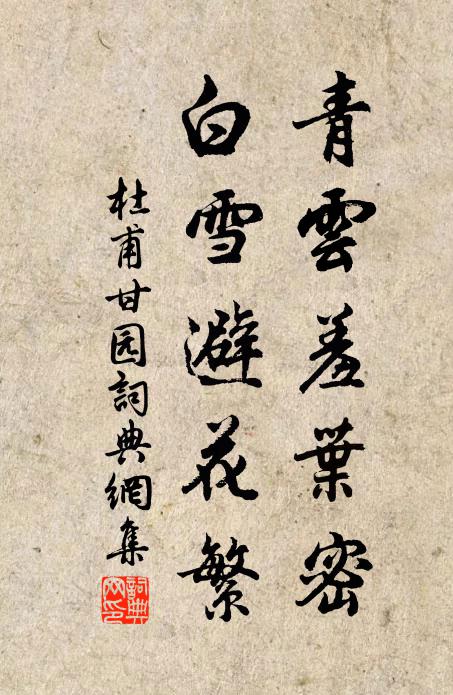 青雲羞葉密
白雪避花繁
杜甫甘园詞典網集
詞典網印